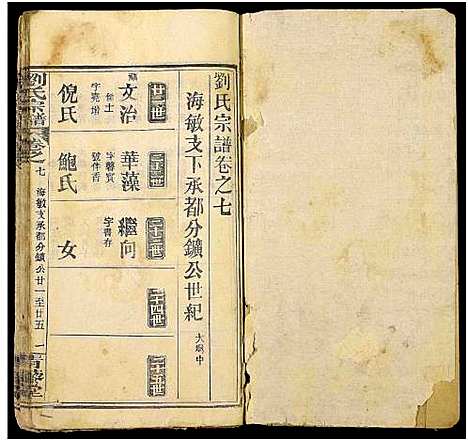 劉氏宗譜卷之七
海敏支下承都分鑛公世紀
大夥中
廿一世
文治
字堯增
倪氏
二十二世
華藻
字馨賓
號伴香
鮑氏
二十三世
繼向
字書存
女
二十四世
二十五世
劉氏宗譜
卷之七
海敏支下承都分鑛公廿一至廿五
一
青藜堂